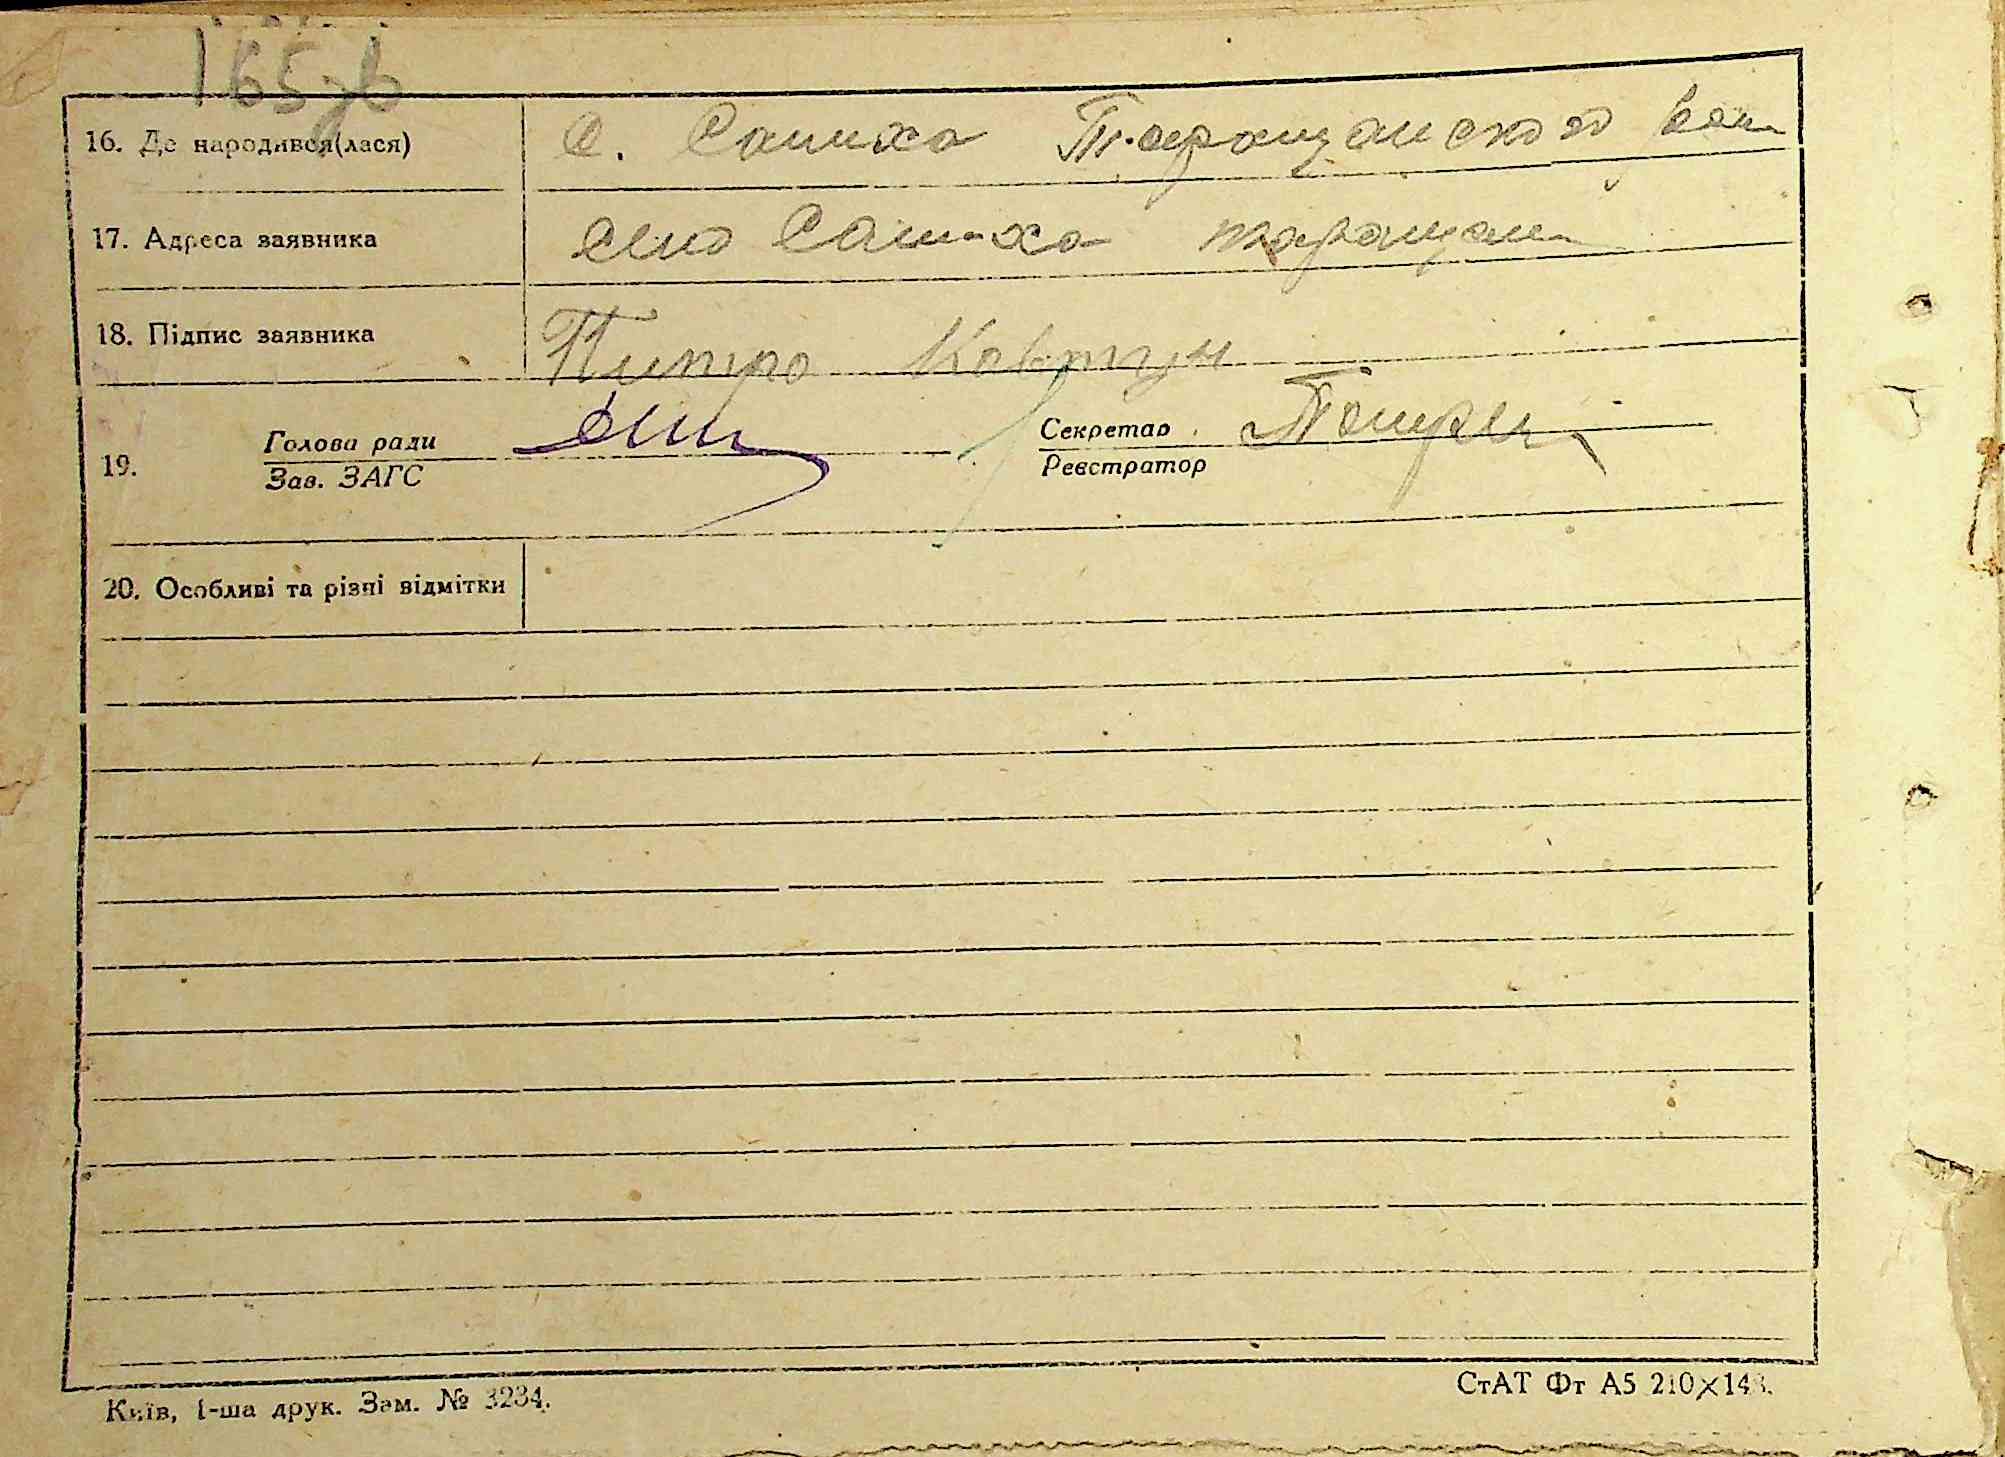 165зв
16. Де народився(лася) с. Сашка Таращанского
17. Адреса заявника село Сашка
18. Підпис заявника Питро Ковтун
19. Голова ради Секретар
Зав. ЗАГС Реєстратор
20. Особливі та різні відмітки
Київ, 1-ша друк. Зам. № 3234.
СтАТ Фт А5 210×148.